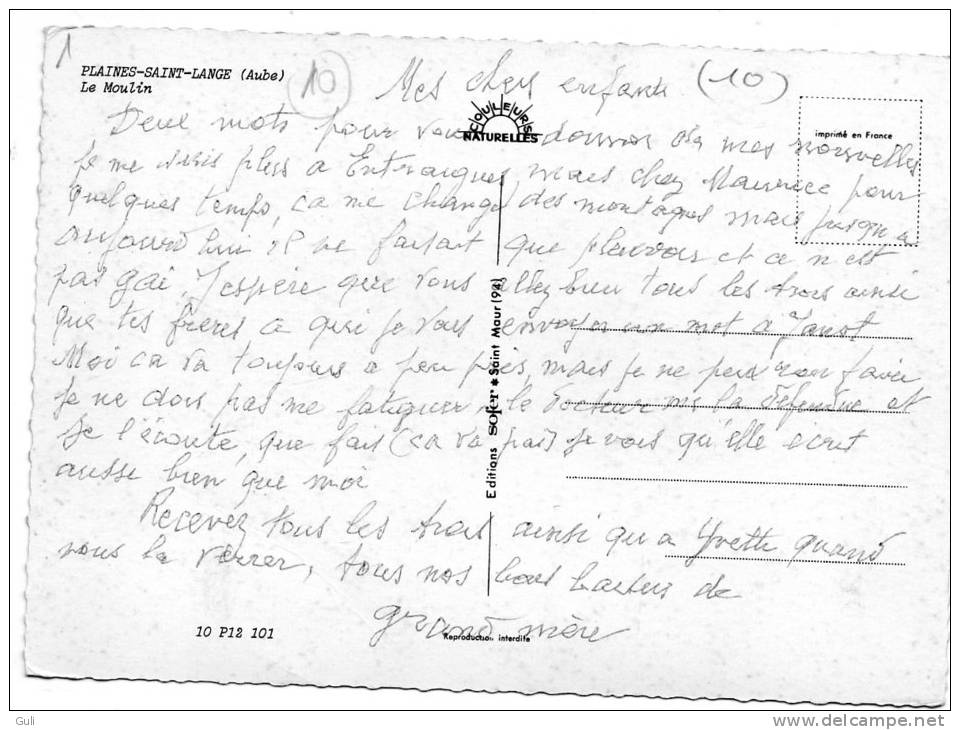 1
PLAINES-SAINT-LANGE (Aube)
Le Moulin
10
Mes chers enfants (10)
COULEURS
NATURELLES
imprimé en France
Deux mots pour vous donner de mes nouvelles
Je me suis plus a Entraigues mais chez Maurice pour
quelques temps, ca me change des montagnes mais jusqu a
aujourd hui il ne faisait que pleuvoir et ce n est
pas gai, J'espère que vous allez bien tous les trois ainsi
que tes frères a qui je vous envoyer un mot a Janot
Moi ca va toujours a peu près, mais je ne peux rien faire
Je ne dois pas me fatiguer, le docteur me la défendue et
Je l'écoute, que fais (ca va pas) Je vois qu'elle écrit
aussi bien que moi
Recevez tous les trois ainsi qu a Yvette quand
vous la verrez, tous nos bons baisers de
grand mère
Editions Sofer * Saint Maur (94)
10 P12 101
Reproduction interdite
Guli
delcampe.net